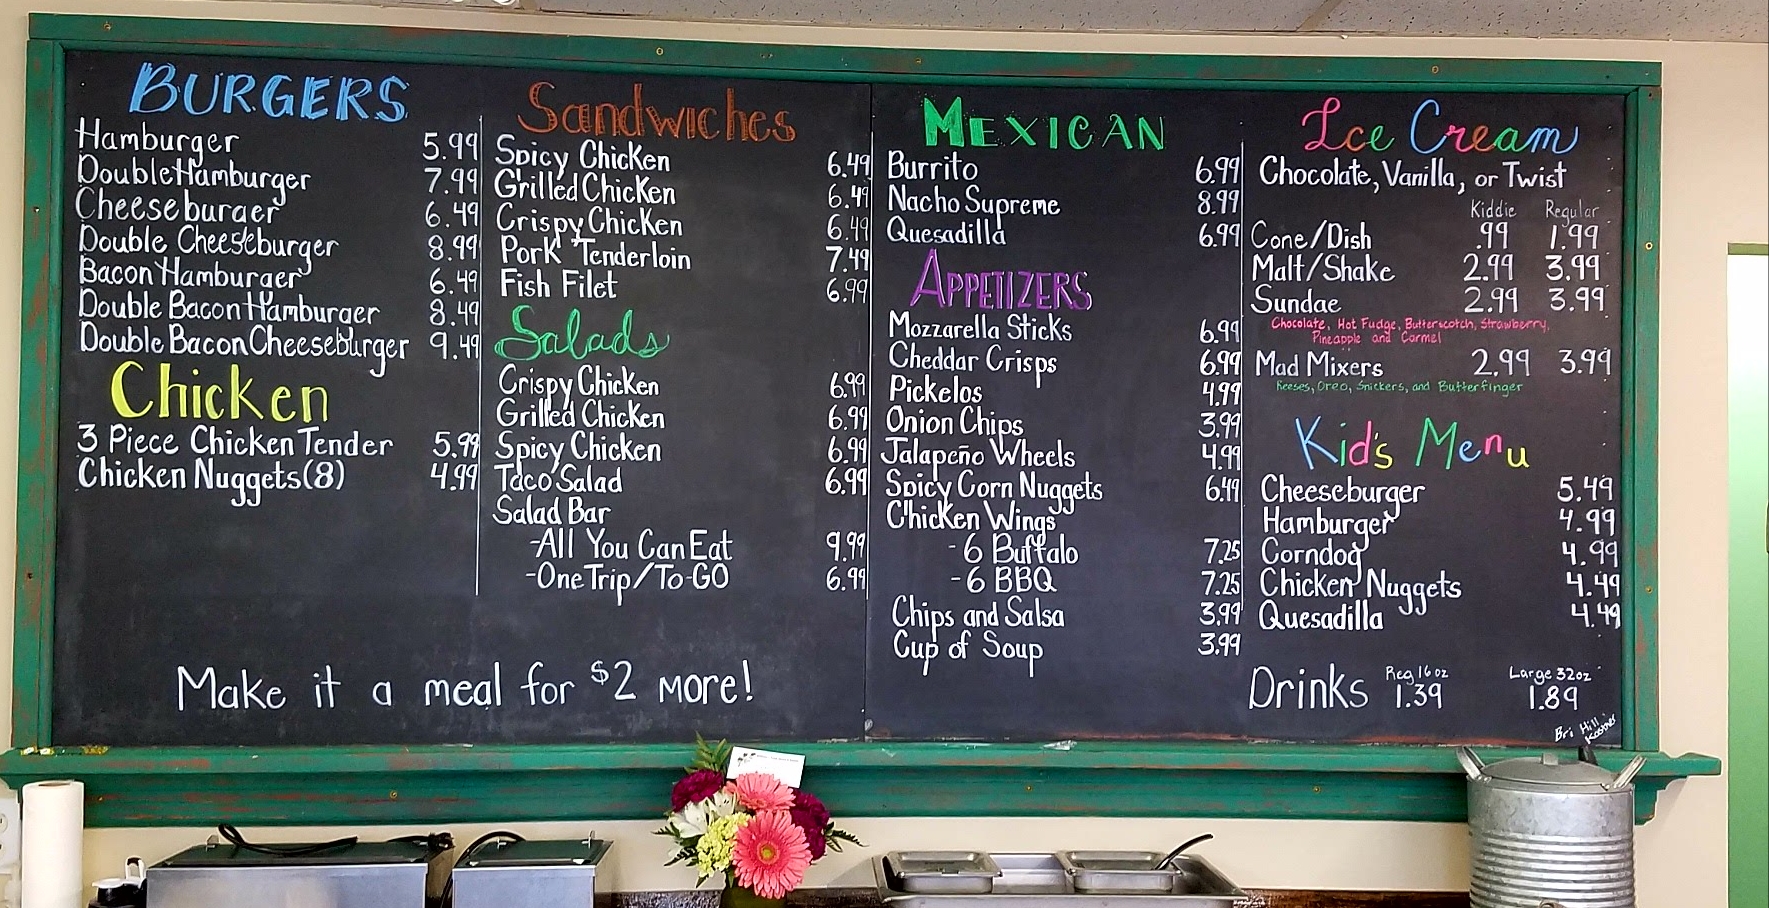 BURGERS
Hamburger 5.99
Double Hamburger 7.99
Cheeseburger 6.49
Double Cheeseburger 8.99
Bacon Hamburger 6.49
Double Bacon Hamburger 8.49
Double Bacon Cheeseburger 9.49
Chicken
3 Piece Chicken Tender 5.99
Chicken Nuggets (8) 4.99
Sandwiches
Spicy Chicken 6.49
Grilled Chicken 6.49
Crispy Chicken 6.49
Pork Tenderloin 7.49
Fish Filet 6.99
Salads
Crispy Chicken 6.99
Grilled Chicken 6.99
Spicy Chicken 6.99
Taco Salad 6.99
Salad Bar
-All You Can Eat 9.99
-One Trip/To-GO 6.99
Make it a meal for $2 more!
MEXICAN
Burrito 6.99
Nacho Supreme 8.99
Quesadilla 6.99
APPETIZERS
Mozzarella Sticks 6.99
Cheddar Crisps 6.99
Pickelos 4.99
Onion Chips 3.99
Jalapeño Wheels 4.99
Spicy Corn Nuggets 6.49
Chicken Wings
- 6 Buffalo 7.25
- 6 BBQ 7.25
Chips and Salsa 3.99
Cup of Soup 3.99
Ice Cream
Chocolate, Vanilla, or Twist
Kiddie Regular
Cone/Dish .99 1.99
Malt/Shake 2.99 3.99
Sundae 2.99 3.99
Chocolate, Hot Fudge, Butterscotch, Strawberry,
Pineapple and Carmel
Mad Mixers 2.99 3.99
Reeses, Oreo, Snickers, and Butterfinger
Kid's Menu
Cheeseburger 5.49
Hamburger 4.99
Corndog 4.99
Chicken Nuggets 4.49
Quesadilla 4.49
Reg 16 oz Large 32oz
Drinks 1.39 1.89
Bri Hill